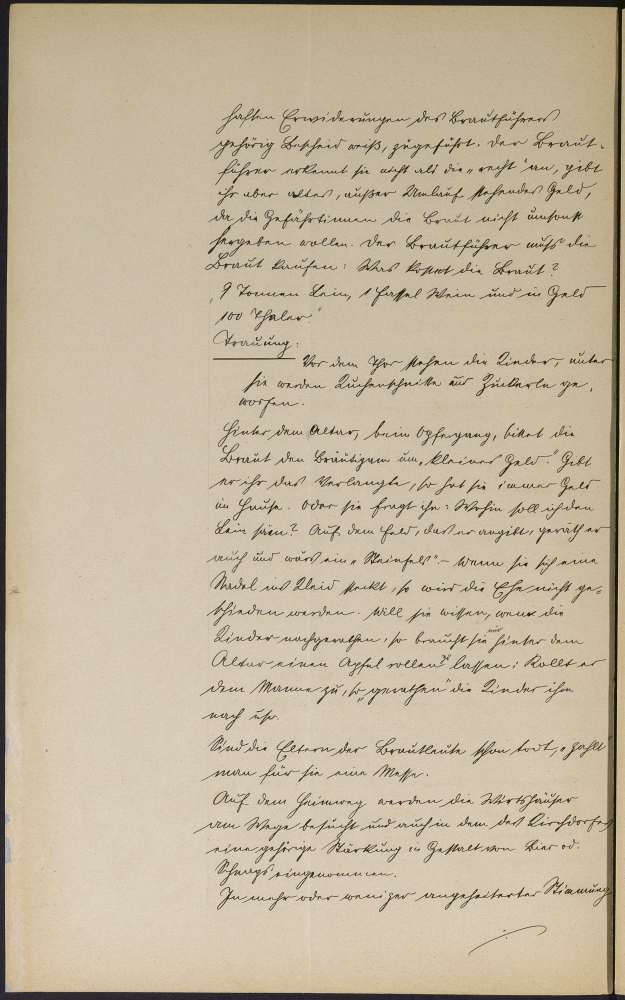 haften Erwiderungen des Brautführers
gehörig Bescheid weiß, zugeführt. Der Braut-
führer erkennt sie nicht als die „recht" an, gibt
ihr aber altes, außer Umlauf stehendes Geld,
da die Gefährtinnen die Braut nicht umsonst
hergeben wollen. Der Brautführer muß die
Braut kaufen: Was kostet die Braut?
„9 Tonnen Lein, 1 Fassel Wein und in Geld
100 Thaler."
Trauung:
Vor dem Thor stehen die Kinder, unter
sie werden Kuchenschnitte und Zuckerln ge-
worfen.
Hinter dem Altar, beim Opfergang, bittet die
Braut den Bräutigam um „kleines Geld." Gibt
er ihr das Verlangte, so hat sie immer Geld
im Hause. Oder sie fragt ihn: Wohin soll ich den
Lein säen? Auf dem Feld, das er angibt, geräth er
auch und wär's ein „Steinfels". – Wenn sie sich eine
Nadel ins Kleid steckt, so wird die Ehe nicht ge-
schieden werden. Will sie wissen, wem die
Kinder nachgerathen, so braucht sie nur hinter dem
Altar einen Apfel rollen zu lassen: Rollt er
dem Manne zu, so „gerathen" die Kinder ihm
nach usw.
Sind die Eltern der Brautleute schon todt, „zahlt"
man für sie eine Messe.
Auf dem Heimweg werden die Wirtshäuser
am Wege besucht und auch in dem des Kirchdorfes
eine gehörige Stärkung in Gestalt von Bier od.
Schnaps eingenommen.
In mehr oder weniger angeheiterter Stimmung